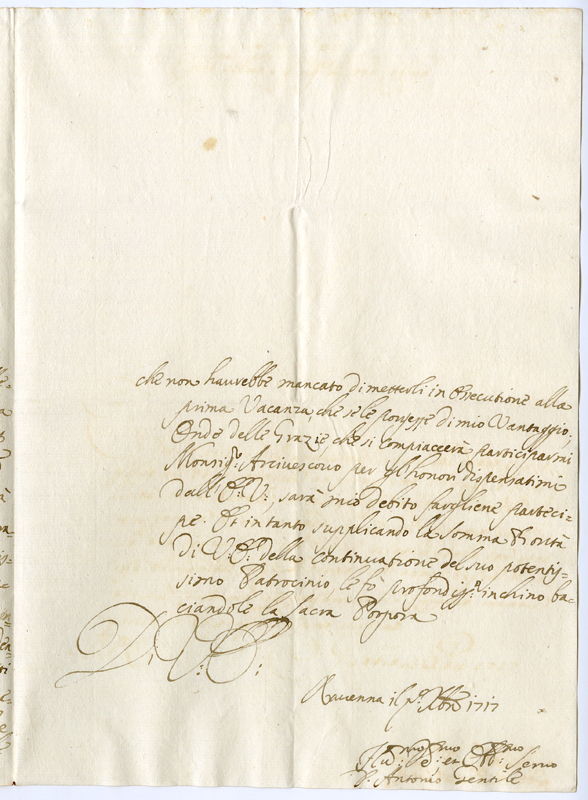 che non haurebbe mancato di metterli in Essecutione alla
prima Vacanza, che se le porgesse di mio Vantaggio;
Onde delle Grazie, che si compiacerà participarmi
Monsig.r Arciuescouo per gl'honori dispensatimi
dall'E: V: sarà mio debito fargliene parteci-
pe. Et in tanto supplicando la somma Bontà
di V: E: della continuatione del suo potentis-
simo Patrocinio le fò profondiss.o inchino ba-
ciandole la Sacra Porpora
Di V: E:
Rauenna il p.o Xbre 1717
Hu:mo De:mo et Obb:mo Seruo
Antonio Gentile